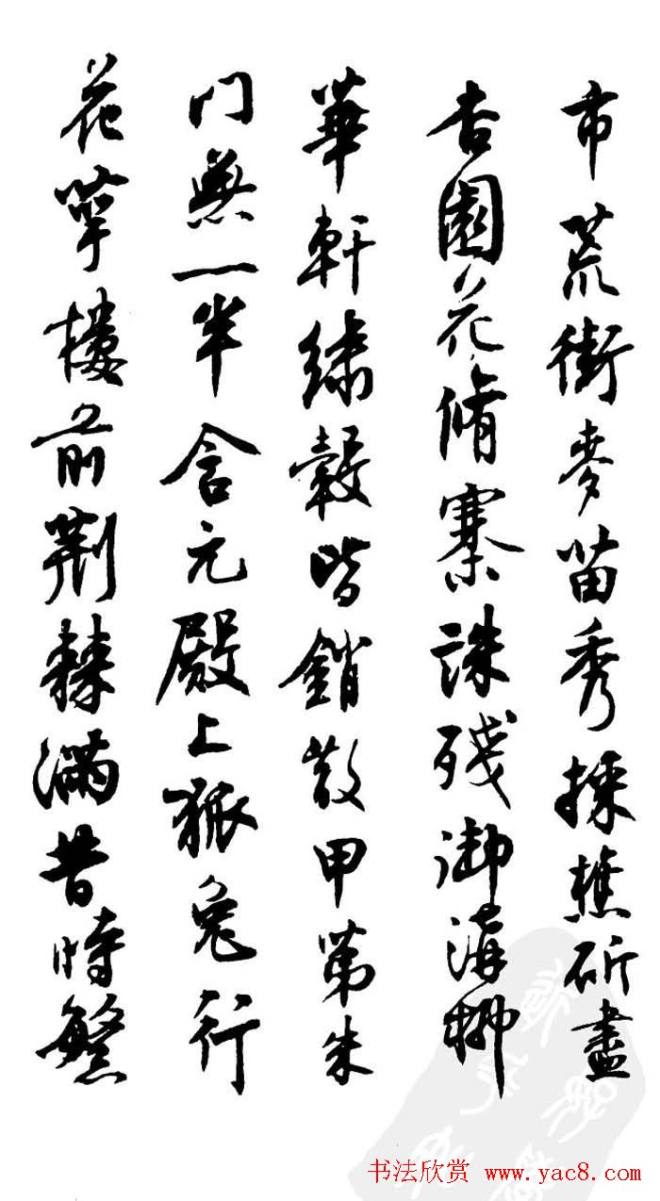 市荒街麥苗秀採樵斫盡
杏園花脩寨誅残御溝柳
華軒繡轂皆銷散甲第朱
門無一半含元殿上狐兔行
花萼樓前荆棘滿昔時繁
书法欣赏 www.yac8.com